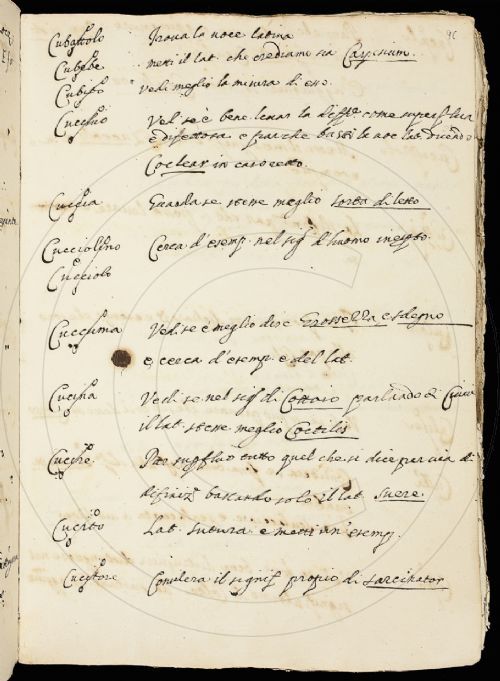 96
Cubattolo Trova la voce latina
Cubebe metti il lat. che crediamo sia Carpesium.
Cubito Vedi meglio la misura di esso.
Cucchio Ved. se è bene levar la diffin. come superflua
e difettosa e par che basti la voce lat. dicendo
Coclear in casocetto.
Cuccia Guarda se stene meglio sorta di letto
Cucciolino Cerca d'esemp. nel sig. d'huomo inesperto.
Cucciolo
Cuccuma Ved. se è meglio dire Grossezza, e sdegno
e cerca d'esemp. e del lat.
Cucina Vedi se nel sig. di Cottoio parlando di
il lat. stene meglio Coctilis
Cucire Par supfluo tutto quel che si dice per via di
difiniz. bastando solo il lat. suere.
Cucito Lat. sutura e metti un' esemp.
Cucitore Considera il signif. propio di sarcinator